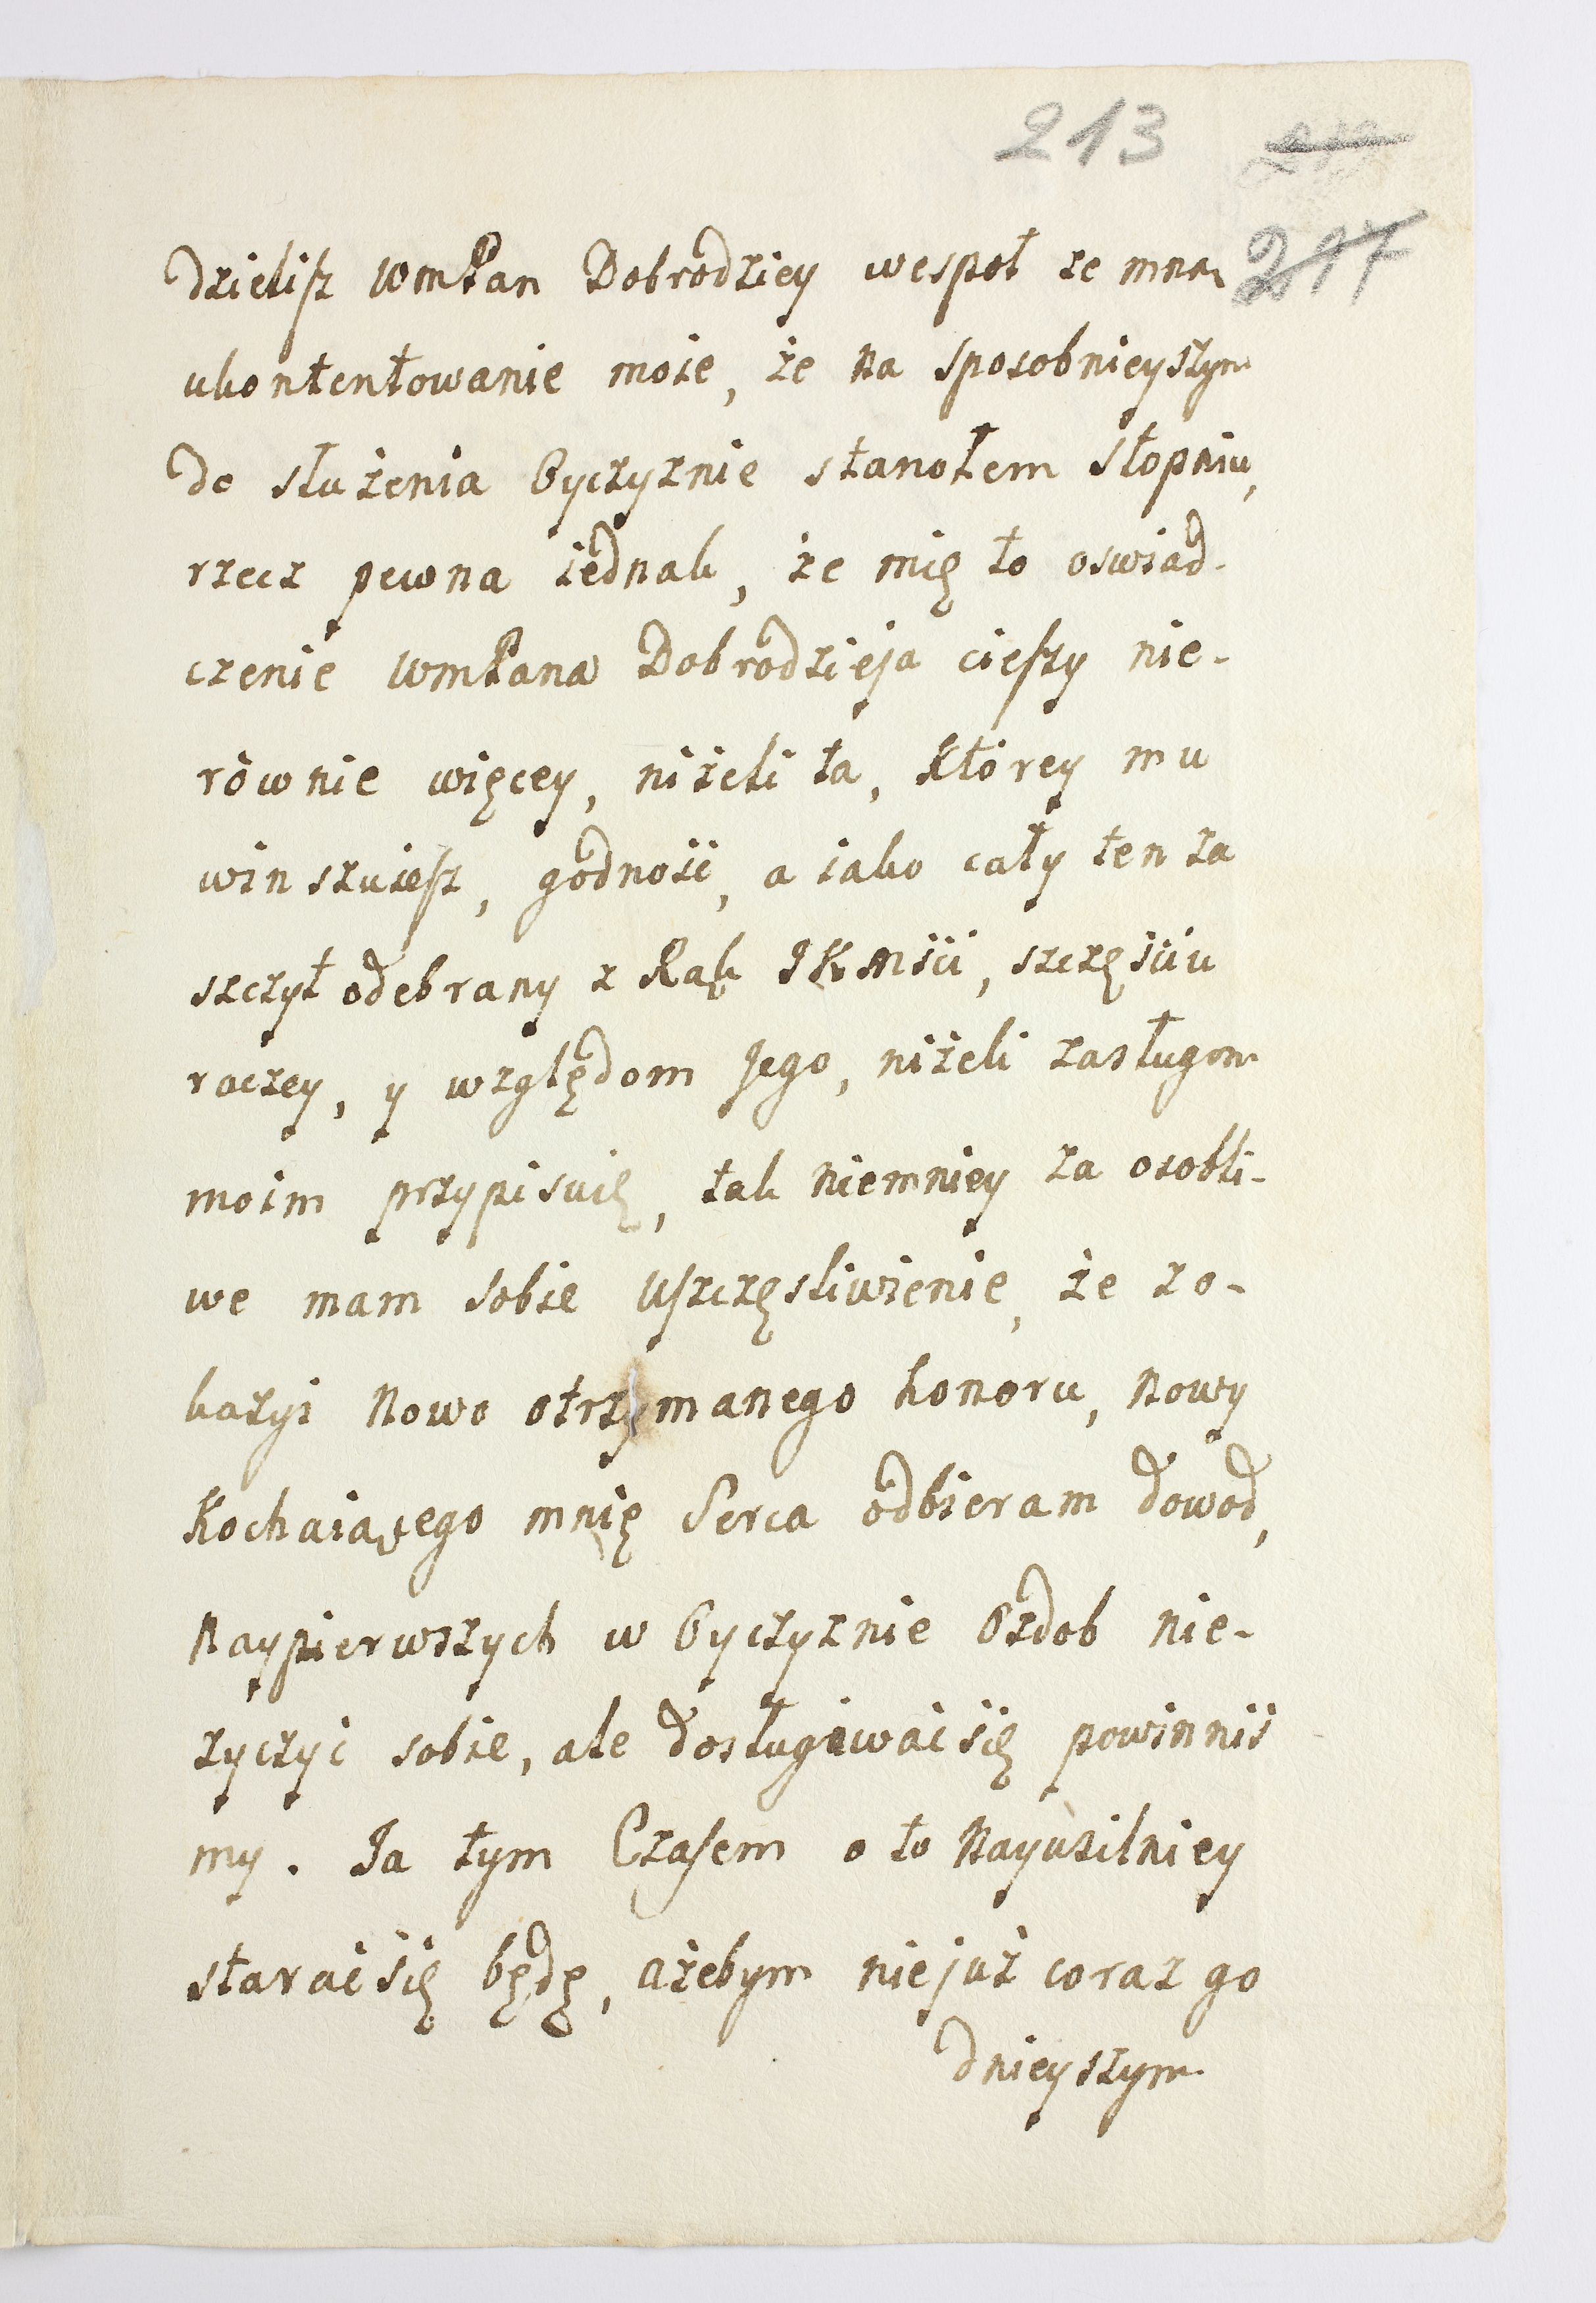 213 217
Dzielisz WmPan Dobrodziey wespoł ze mną
ukontentowanie moie, że na sposobnieyszym
do służenia Oyczyznie stanołem stopniu,
rzecz pewna iednak, że mię to oswiad-
czenie WmPana Dobrodzieja cieszy nie-
równie więcey, niżeli ta, którey mu
winszuiesz, godność, a iako cały ten za
szczyt odebrany z Rąk JKMści, szczęściu
raczey, y względom Jego, niżeli zasługom
moim przypisuię, tak niemniey za osobli-
we mam sobie uszczęsliwienie, że z o-
kazyi nowo otrzymanego honoru, nowy
Kochaiącego mnię Serca odbieram dowod,
Naypierwszych w Oyczyznie Ozdob nie-
życzyć sobie, ale dosługiwać się powinniś
my. Ja tym Czasem o to nayusilniey
starać się będę, ażebym nie już coraz go
dnieyszym